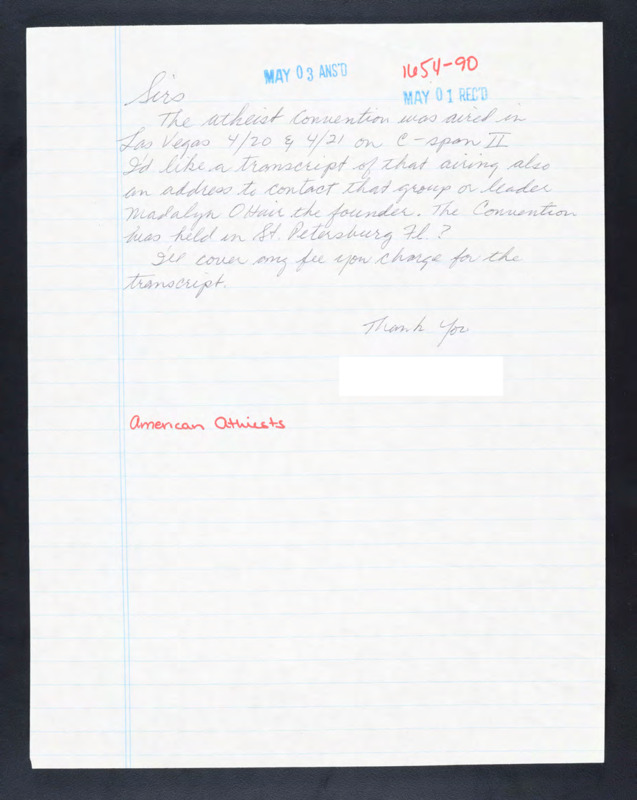 MAY 03 ANS'D
1654-90
MAY 01 REC'D
Sirs
The atheist Convention was aired in
Las Vegas 4/20 & 4/21 on C-span II
I'd like a transcript of that airing also
an address to contact that group or leader
Madalyn OHair the founder. The Convention
was held in St. Petersburg Fl.?
I'll cover any fee you charge for the
transcript.
Thank You
American Athiests